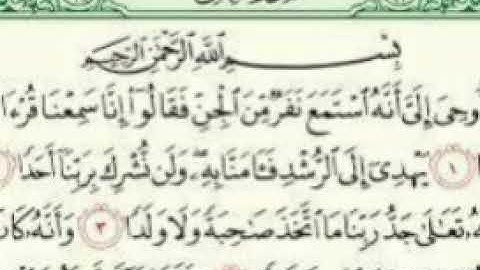 بِسْمِ اللَّهِ الرَّحْمَٰنِ الرَّحِيمِ
وحِىَ إِلَىَّ أَنَّهُ ٱسْتَمَعَ نَفَرٌ مِّنَ ٱلْجِنِّ فَقَالُوٓا۟ إِنَّا سَمِعْنَا قُرْءَا
١ يَهْدِىٓ إِلَى ٱلرُّشْدِ فَـَٔامَنَّا بِهِۦ وَلَن نُّشْرِكَ بِرَبِّنَآ أَحَدًا
هُۥ تَعَٰلَىٰ جَدُّ رَبِّنَا مَا ٱتَّخَذَ صَٰحِبَةً وَلَا وَلَدًا ٣ وَأَنَّهُۥ كَانَ